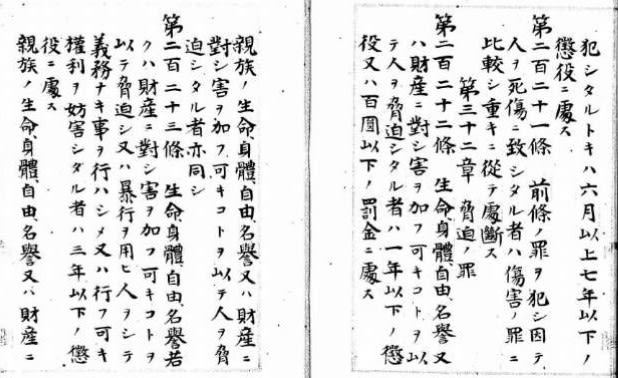 犯シタルトキハ六月以上七年以下ノ
懲役ニ處ス
第二百二十一條　前條ノ罪ヲ犯シ因テ
人ヲ死傷ニ致シタル者ハ傷害ノ罪ニ
比較シ重キニ從テ處斷ス
第三十二章　脅迫ノ罪
第二百二十二條　生命、身體、自由、名譽又
ハ財產ニ對シ害ヲ加フ可キコトヲ以
テ人ヲ脅迫シタル者ハ一年以下ノ懲
役又ハ百圓以下ノ罰金ニ處ス
親族ノ生命、身體、自由、名譽又ハ財產ニ
對シ害ヲ加フ可キコトヲ以テ人ヲ脅
迫シタル者亦同シ
第二百二十三條　生命、身體、自由、名譽若
クハ財產ニ對シ害ヲ加フ可キコトヲ
以テ脅迫シ又ハ暴行ヲ用ヒ人ヲシテ
義務ナキ事ヲ行ハシメ又ハ行フ可キ
權利ヲ妨害シタル者ハ三年以下ノ懲
役ニ處ス
親族ノ生命、身體、自由、名譽又ハ財產ニ